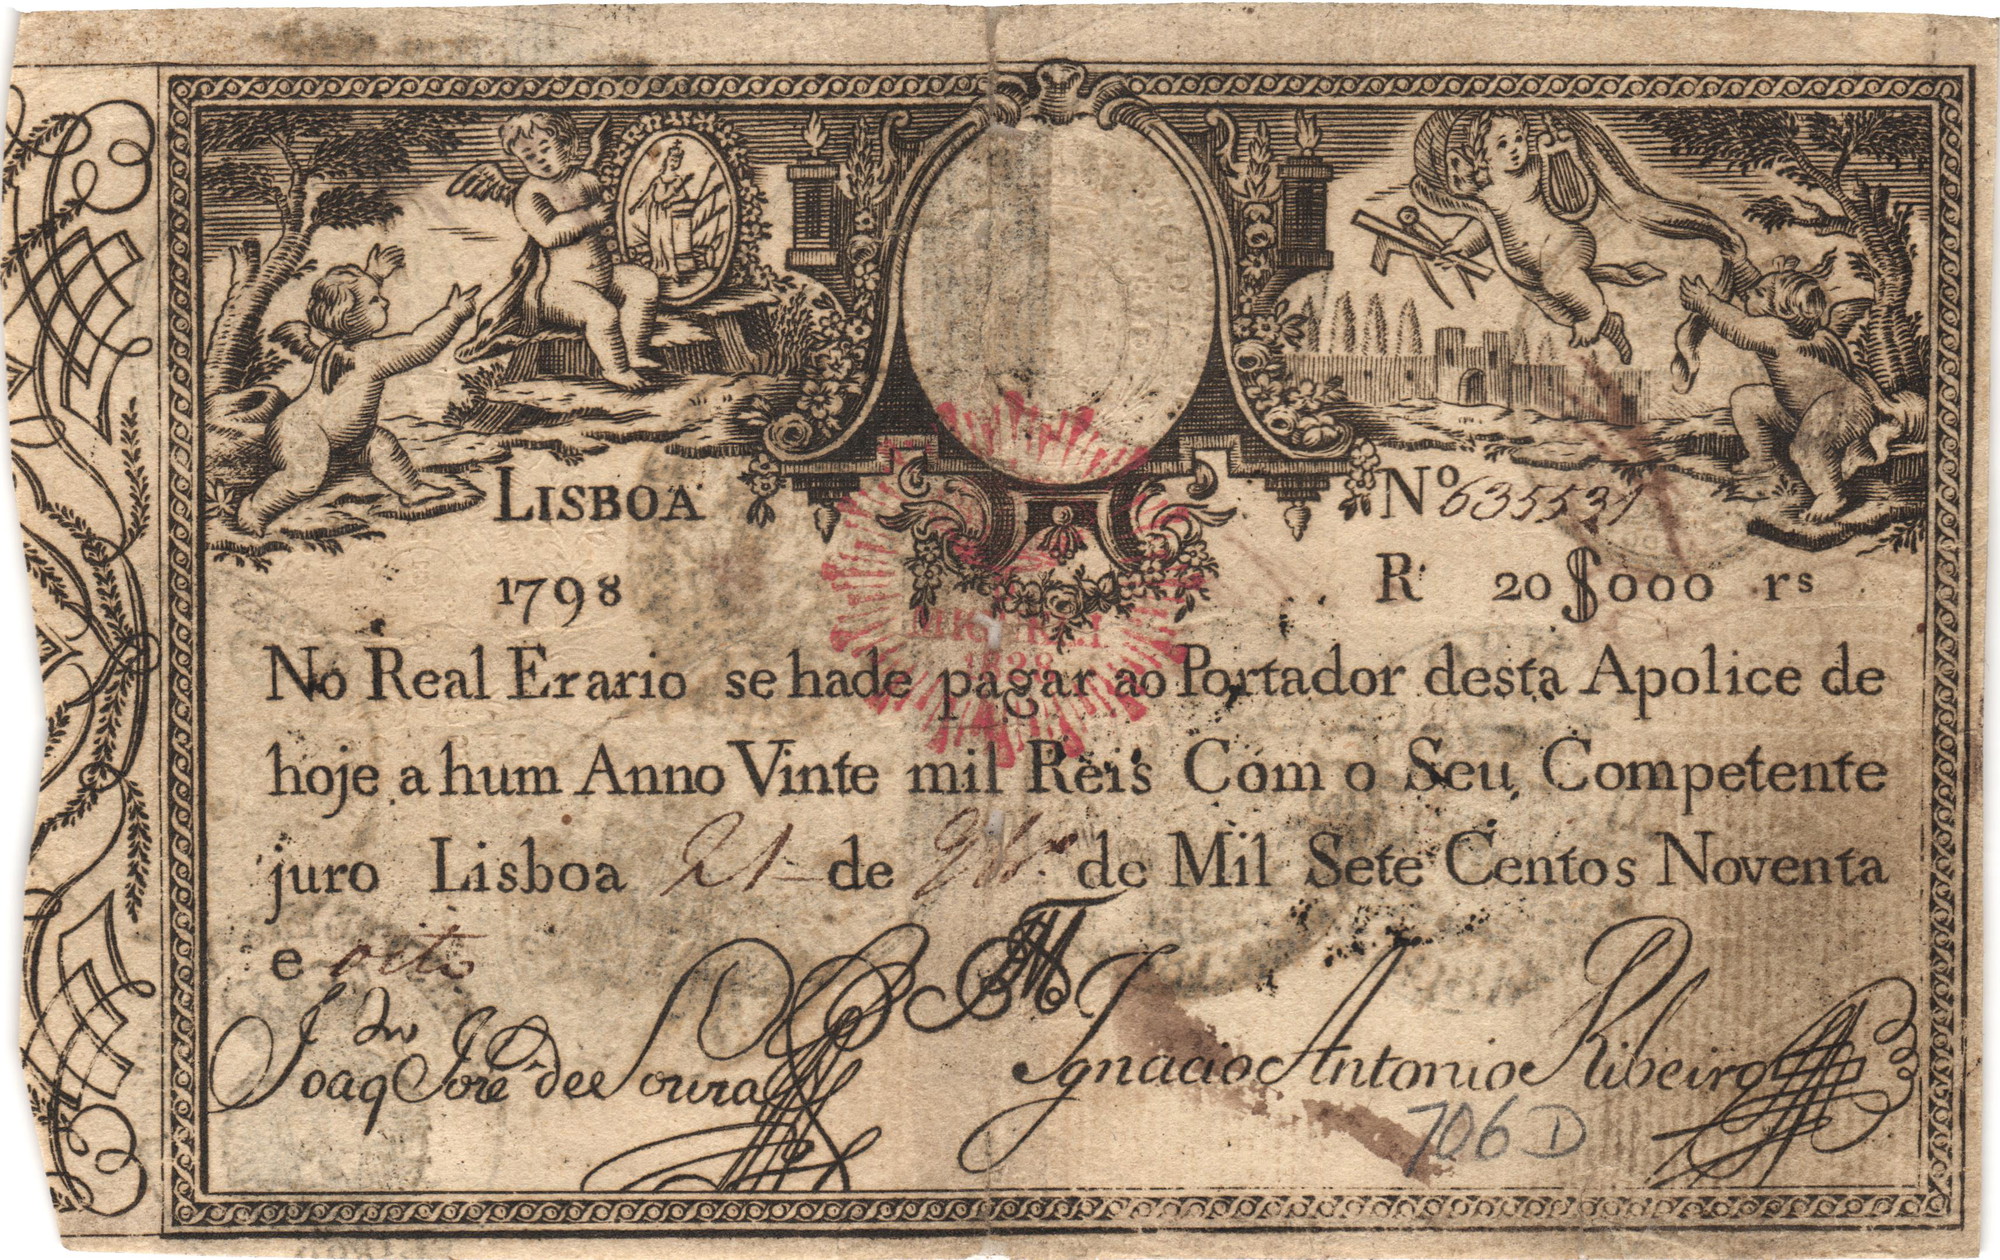 LISBOA
Nº 635531
1798
R. 20$000 rs
No Real Erario se hade pagar ao Portador desta Apolice de
hoje a hum Anno Vinte mil Reis Com o Seu Competente
juro Lisboa 21 de 9br.º de Mil Sete Centos Noventa
e oito
Joaq José de Souza
Ignacio Antonio Ribeiro
706 D